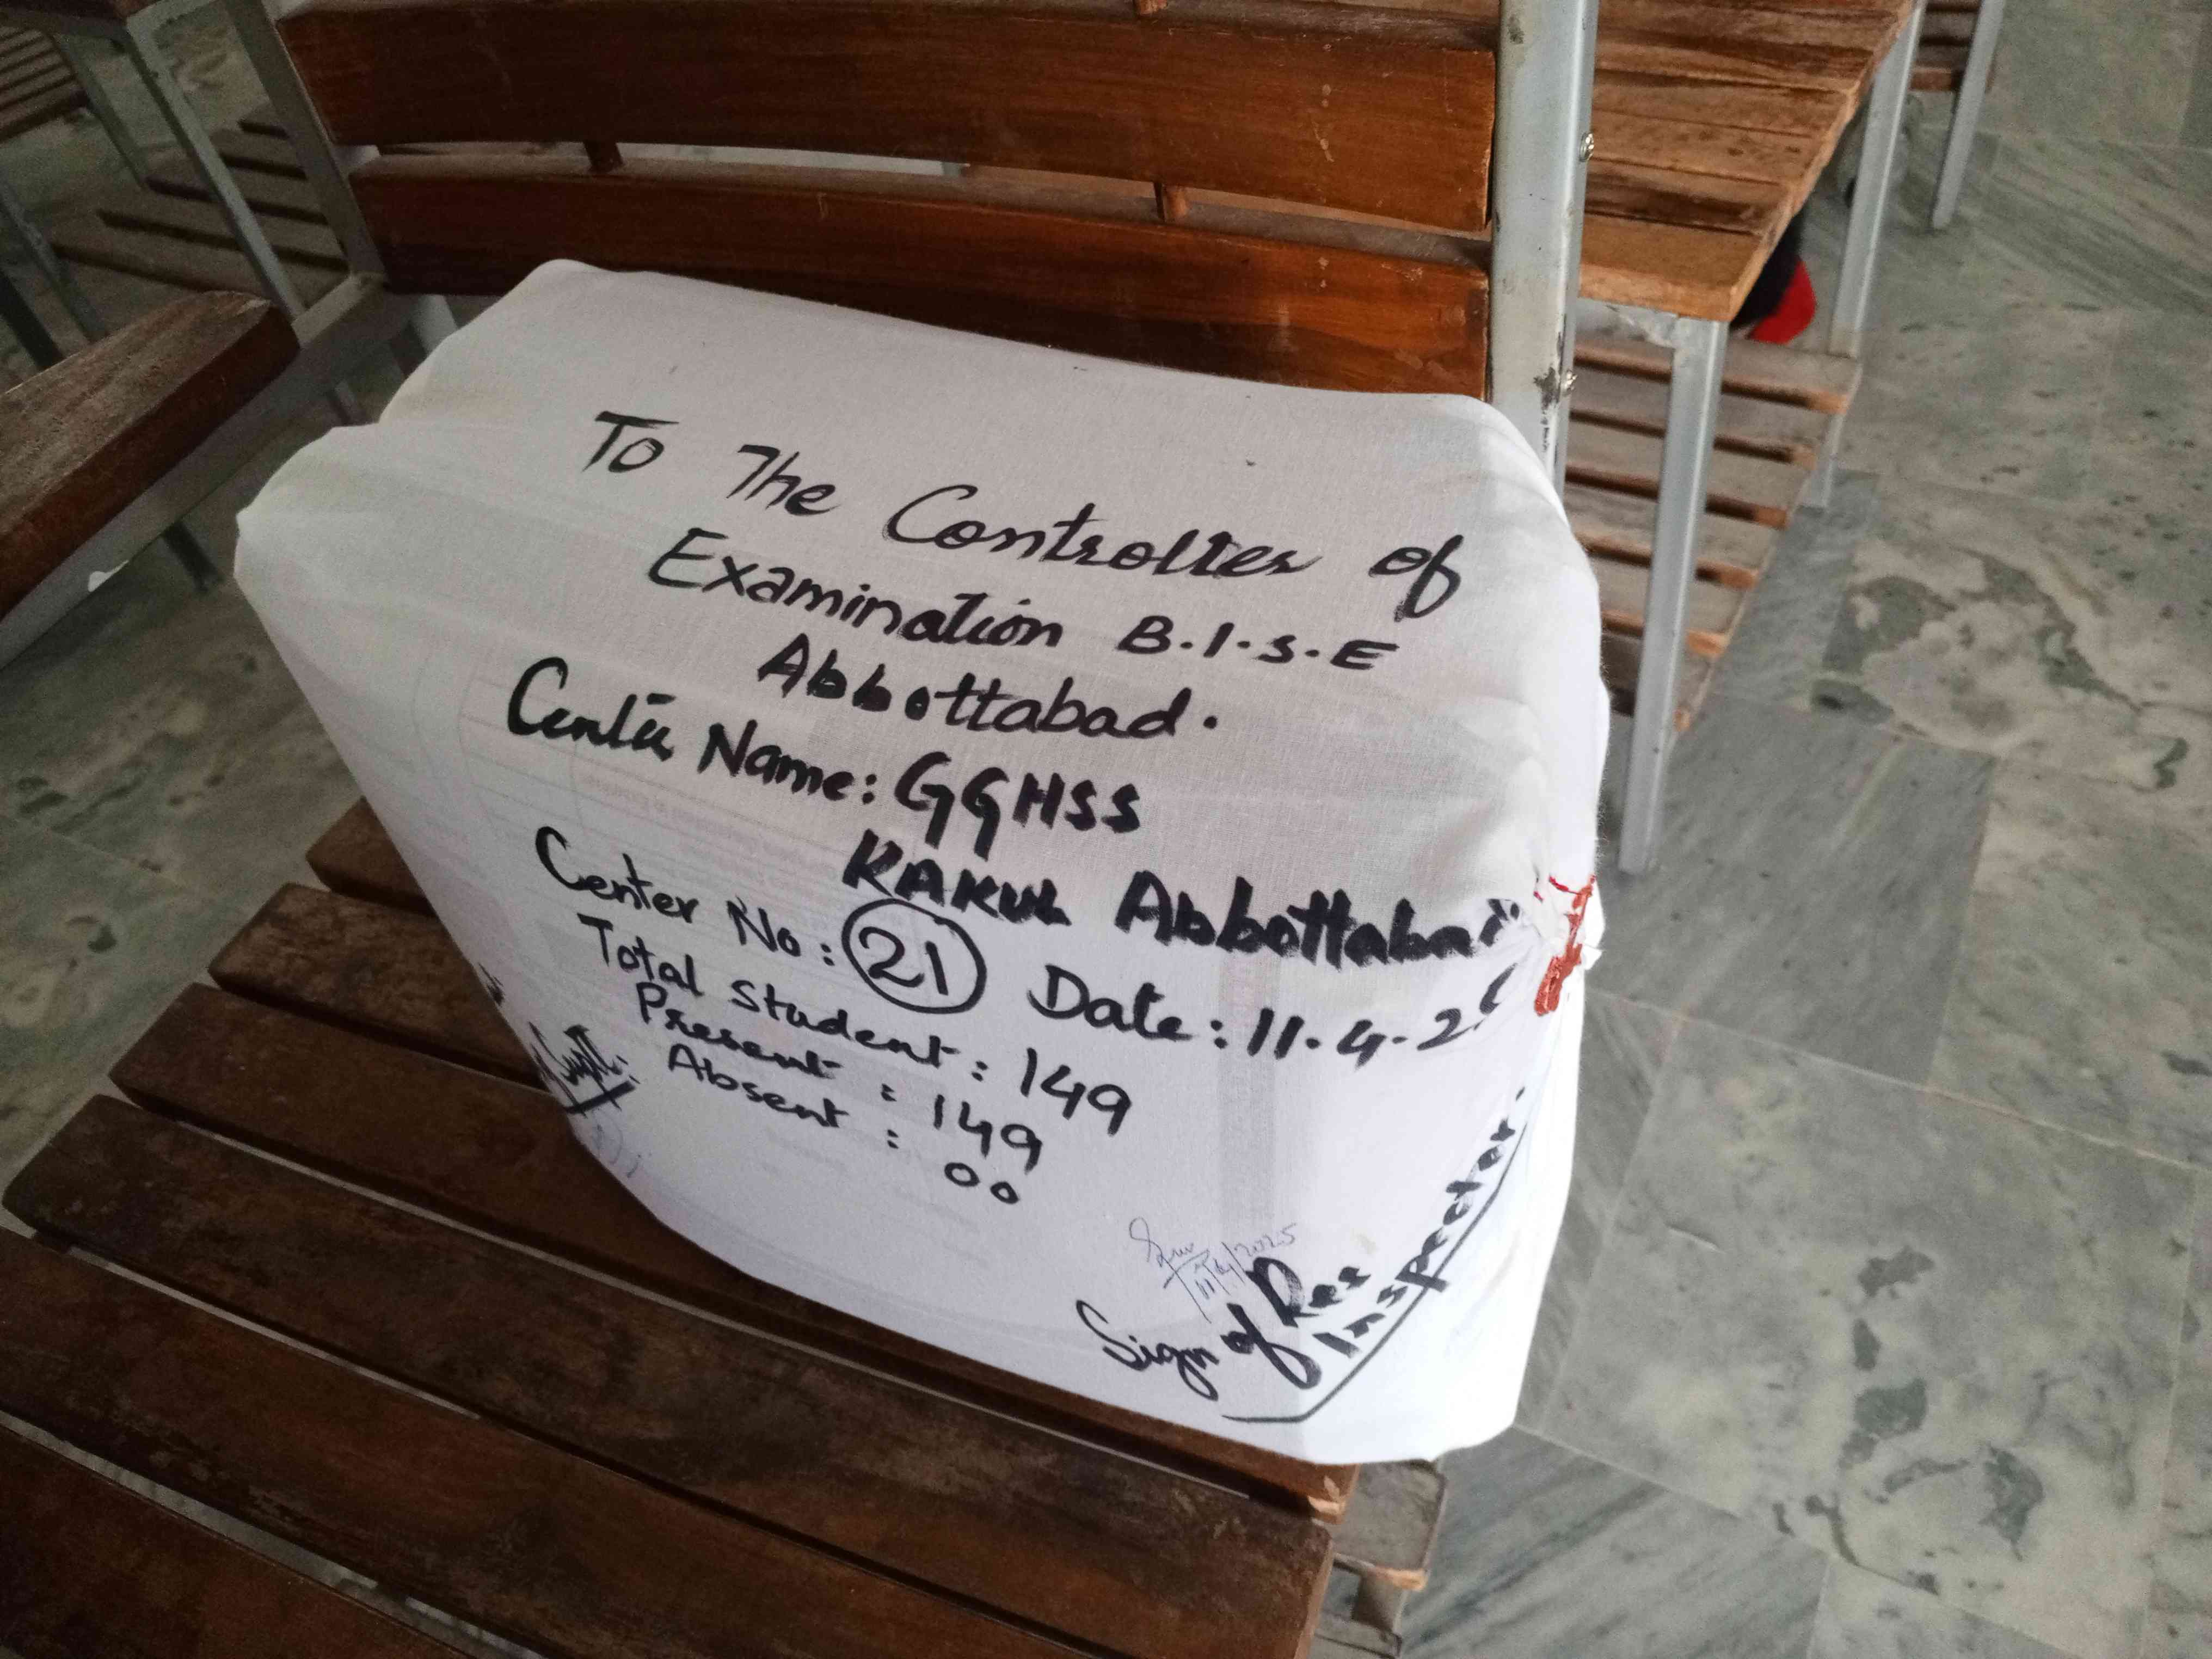 To The Controller of
Examination B.I.S.E
Abbottabad.
Center Name: GGHSS
KAKUL Abbottabad
Center No: 21 Date: 11.4.25
Total Student: 149
Present : 149
Absent : 00
Supdt:
11/4/2025
Sign of Res
Inspector.